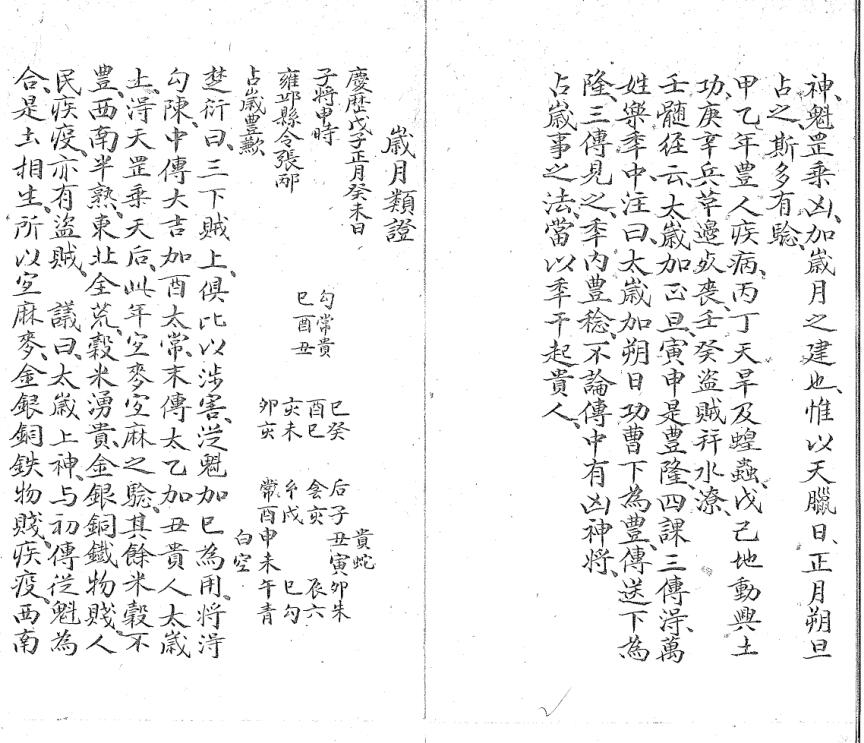 神、魁罡乗凶、加歲月之建也、惟以天臘日、正月朔旦
占之、斯多有騐、
甲乙年豊人疾病、丙丁天旱及蝗蟲、戊己地動興土
功、庚辛兵革邉㢤喪、壬癸盗賊并水潦、
壬髄経云、太歲加正旦、寅申是豊隆、四課三傳淂、萬
姓樂秊中、注曰、太歲加朔日功曹下為豊、傳送下為
隆、三傳見之、秊内豊稔、不論傳中有凶神將、
占歲事之法、當以秊干起貴人、
歲月類證
慶歷戊子正月癸未日
子將申時
雍邱縣令張邴
占歲豊歉
勾常貴
巳酉丑
巳癸
酉巳
亥未
卯亥
貴蛇
后子丑寅卯朱
侌亥　辰六
玄戌　巳勾
常酉申未午青
白空
楚衍曰、三下賊上、俱比以涉害、從魁加巳為用、將淂
勾陳、中傳大吉加酉太常、末傳太乙加丑貴人、太歲
上淂天罡乗天后、此年宜麥宜麻之騐、其餘米穀不
豊、西南半熟、東北全荒、穀米湧貴、金銀銅鐵物賤、人
民疾疫、亦有盗賊、　議曰、太歲上神、与初傳從魁為
合、是土相生、所以宜麻麥、金銀銅鉄物賤、疾疫、西南